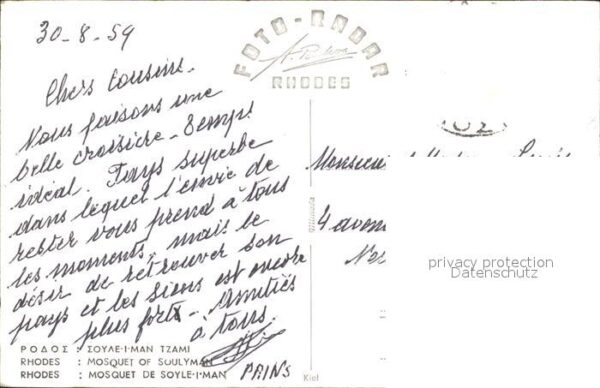 30-8-59
FOTO-RADAR
RHODES
Chers Cousins.
Nous faisons une
belle croisière - Temps
idéal. Pays superbe
dans lequel l'envie de
rester vous prend à tous
les moments, mais le
désir de retrouver son
pays et les siens est encore
plus fort - Amitiés
à tous.
Monsieur
4 aven
privacy protection
Datenschutz
ΡΟΔΟΣ : ΣΟΥΛΕ-Ι-ΜΑΝ ΤΖΑΜΙ
RHODES : MOSQUET OF SOULYMAN
RHODES : MOSQUET DE SOYLE-I-MAN
PRINS
Kiel